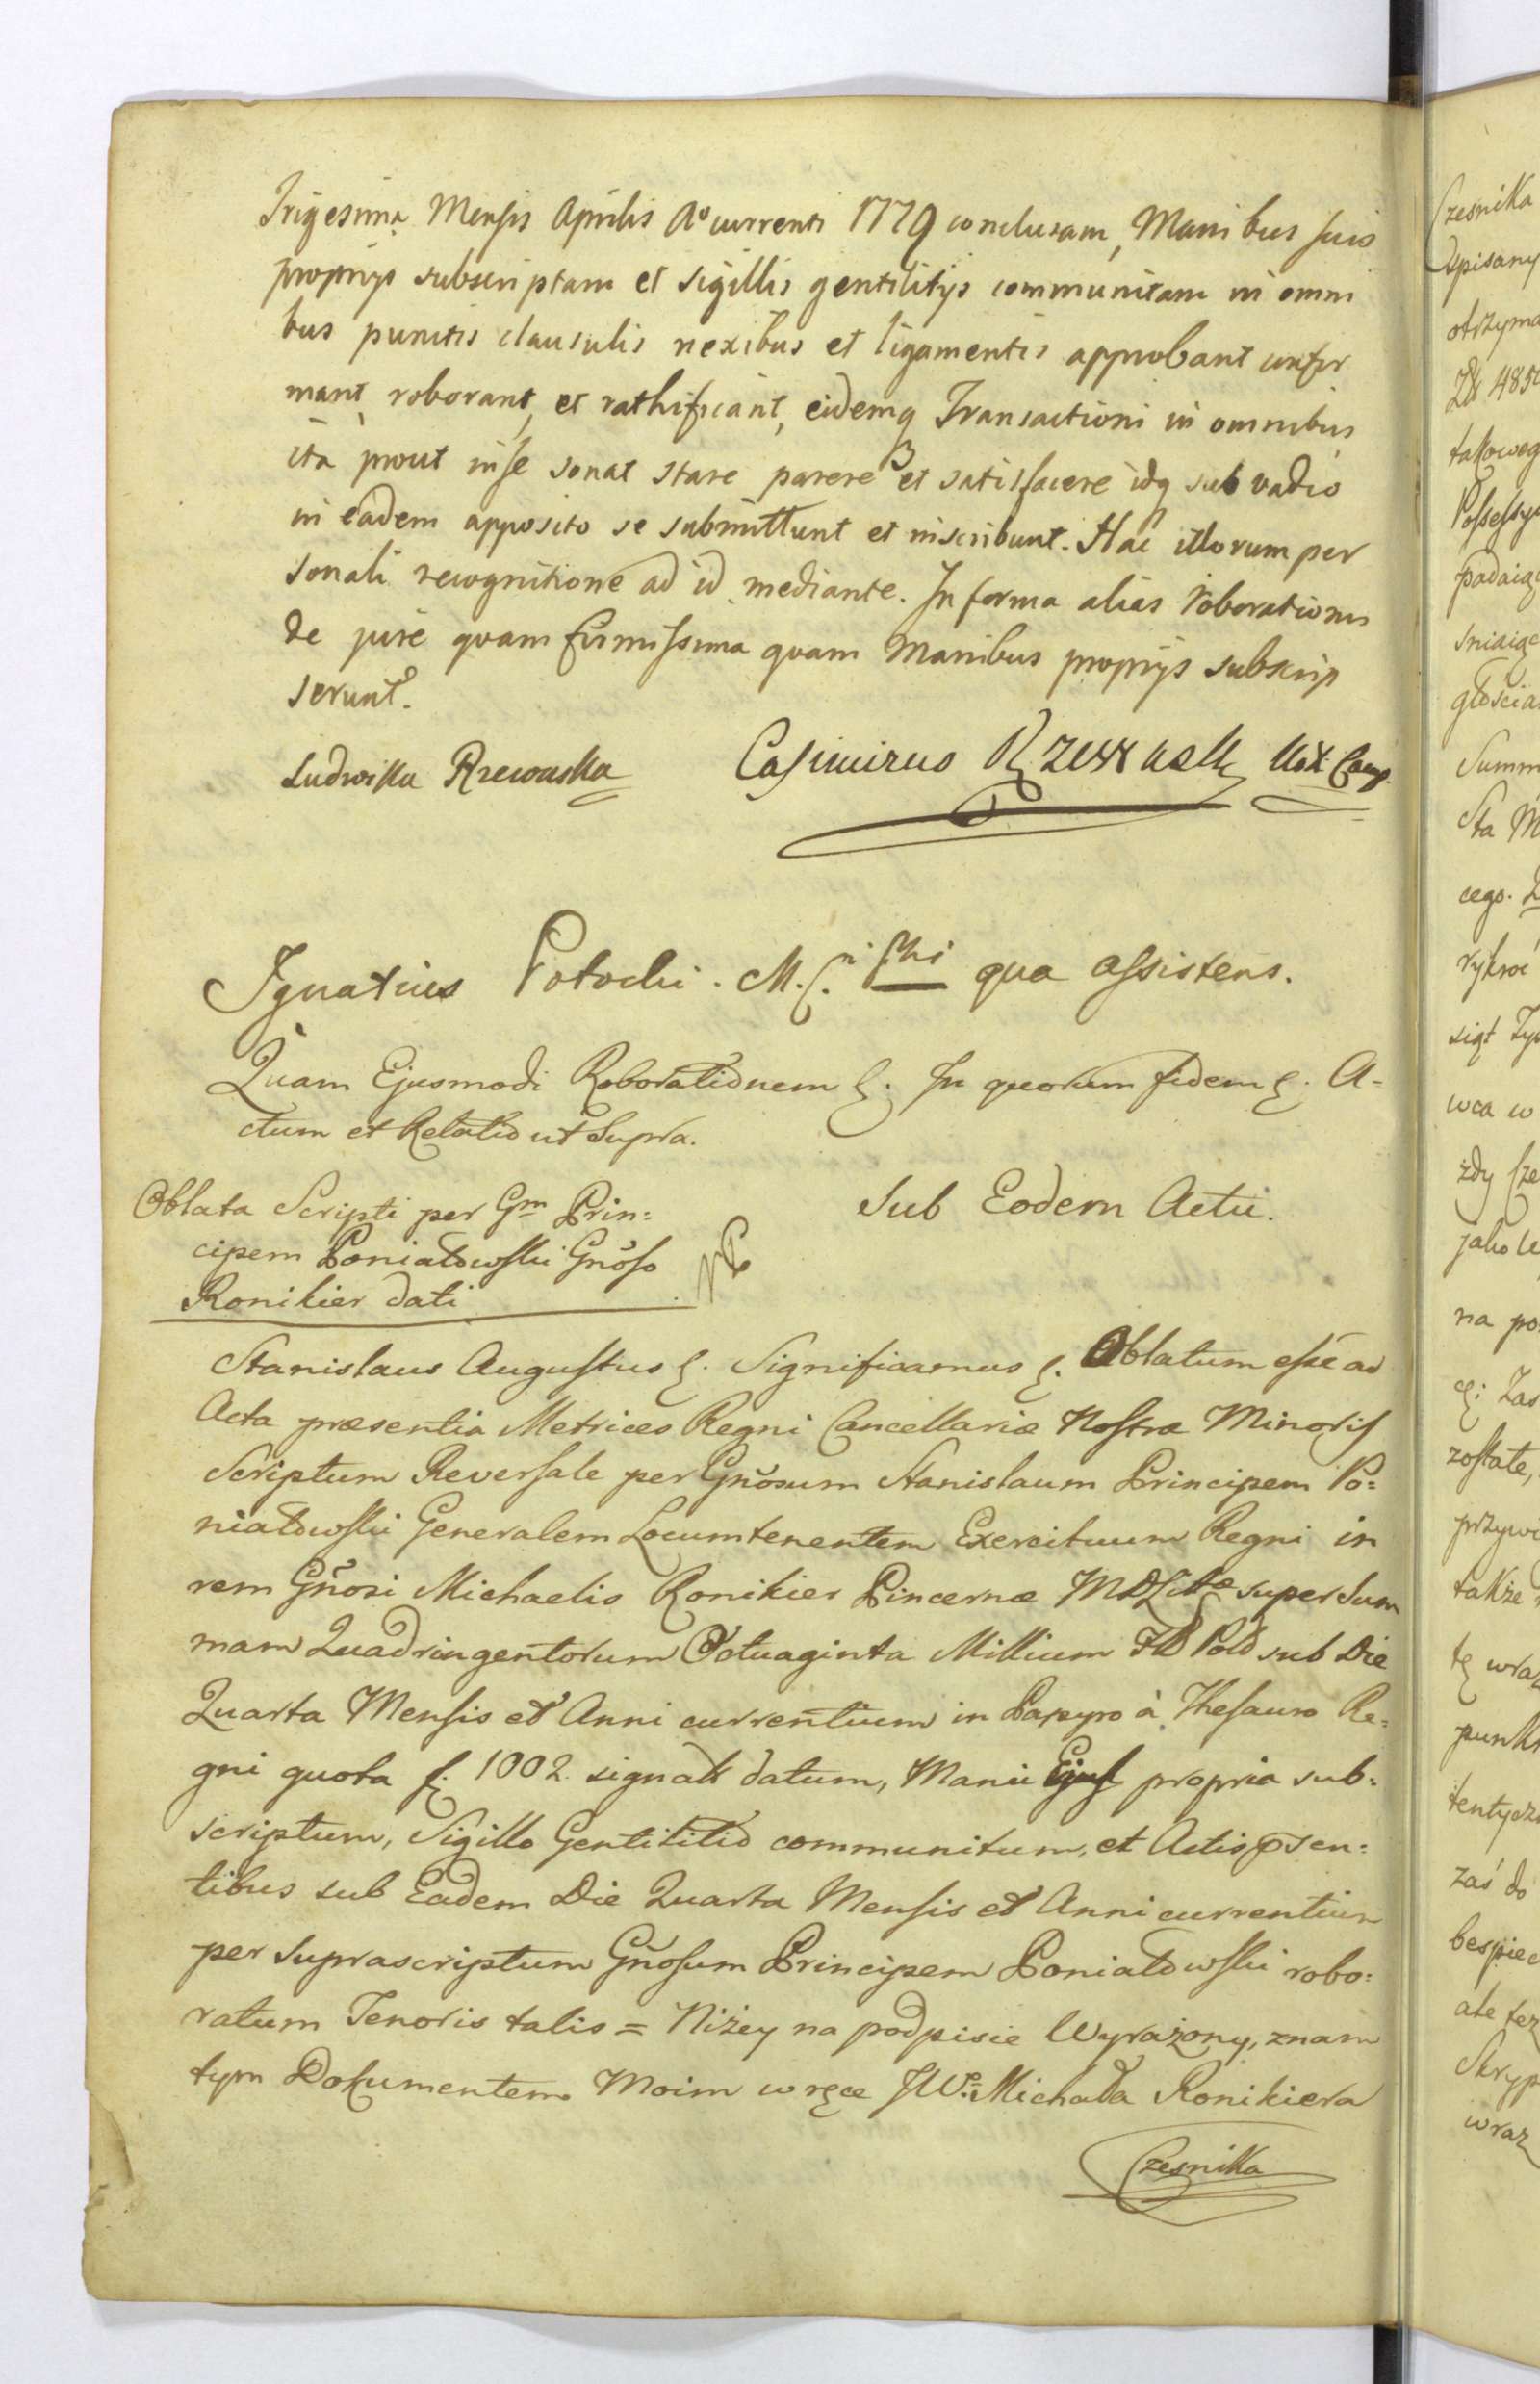 Trigesima Mensis Aprilis Ao currenti 1779 conclusam, Manibus suis
proprijs subscriptam et sigillis gentilitijs communitam in omni
bus punctis clausulis nexibus et ligamentis approbant confir
mant roborant, et rathificant, eidemq Transactioni in omnibus
ita prout inse sonat stare parere et satisfacere idq sub vadio
in eadem apposito se submittunt et inscribunt. Hac illorum per
sonali recognitione ad id mediante. In forma alias Roborationis
de jure quam firmissima quam Manibus proprijs subscrip
serunt.
Ludwika Rzewuska Casimirus Rzewuski Not. Camp.
Ignatius Potocki. M. qua assistens.
Quam Ejusmodi Roborationem &. In quorum fidem &. A-
ctum et Relatio ut Supra.
Oblata Scripti per Gm Prin:
cipem Poniatowski Gnoso
Ronikier dati
Sub Eodem Actu.
Stanislaus Augustus &. Significamus &. Oblatum esse ad
Acta præsentia Metrices Regni Cancellariæ Nostræ Minoris
Scriptum Reversale per Gnosum Stanislaum Principem Po:
niatowski Generalem Locumtenentem Exercituum Regni in
rem Gnosi Michaelis Ronikier Pincernæ MDLittæ super Sum
mam Quadringentorum Octuaginta Millium Fl Pold sub Die
Quarta Mensis et Anni currentium in Papyro à Thesauro Re:
gni quota f. 1002. signatt datum, Manu Ejus propria sub:
scriptum, Sigillo Gentilitio communitum, et Actis psen:
tibus sub Eadem Die Quarta Mensis et Anni currentium
per suprascriptum Gnosum Principem Poniatowski robo:
ratum Tenoris talis = Niżey na podpisie Wyrażony, znam
tym Dokumentem Moim w ręce JWP. Michała Ronikiera
Czesnika
Czesnika
pisany
otrzyma
takoweg
Possessy
padaią
głościa
Summ
Sta M
cego.
rykroć
siąt Ty
wca w
żdy Cze
jako le
na po
Zas
zostałe,
przywi
także
tę wraz
punkt
tentyczn
zaś do
bespiec
ale też
Skryp
wraz